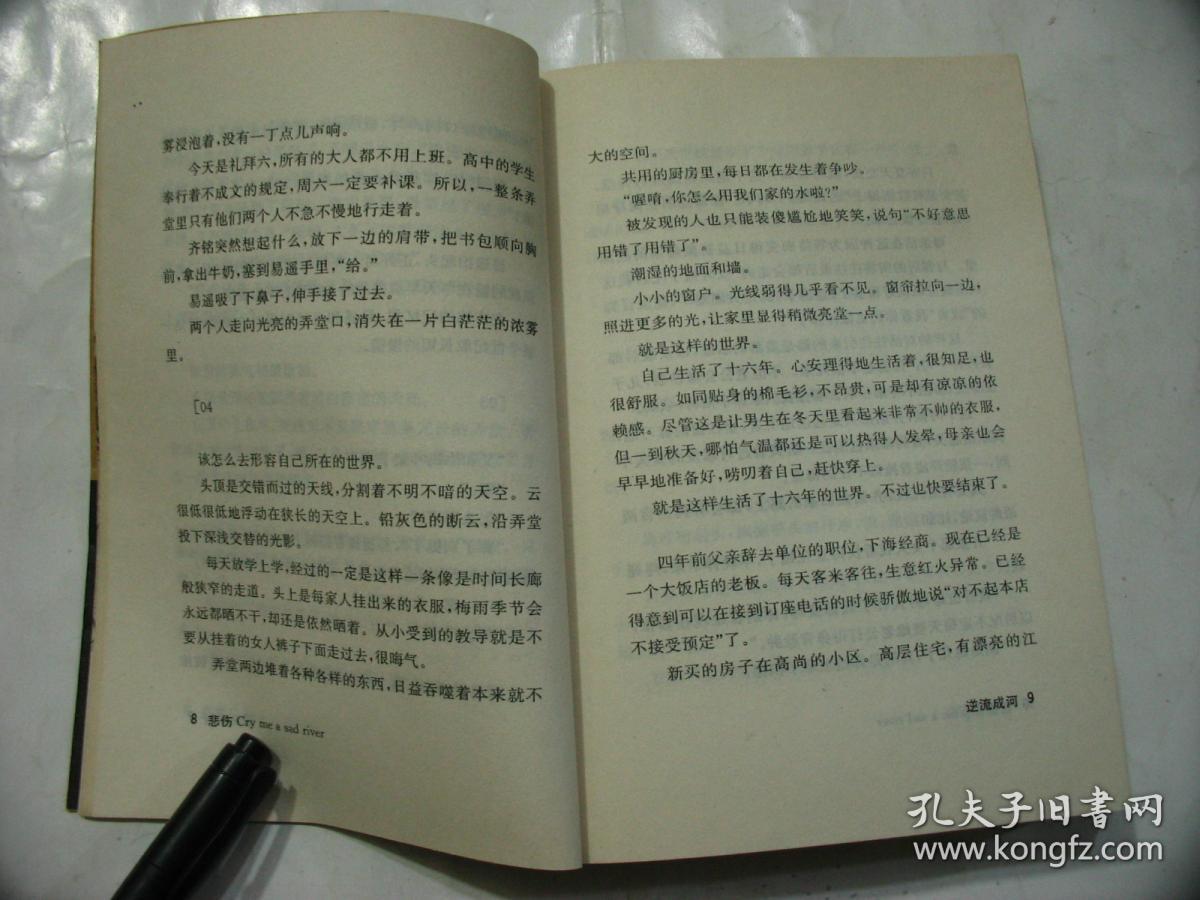 雾浸泡着，没有一丁点儿声响。
今天是礼拜六，所有的大人都不用上班。高中的学生
奉行着不成文的规定，周六一定要补课。所以，一整条弄
堂里只有他们两个人不急不慢地行走着。
齐铭突然想起什么，放下一边的肩带，把书包顺向胸
前，拿出牛奶，塞到易遥手里，“给。”
易遥吸了下鼻子，伸手接了过去。
两个人走向光亮的弄堂口，消失在一片白茫茫的浓雾
里。
[04
该怎么去形容自己所在的世界。
头顶是交错而过的天线，分割着不明不暗的天空。云
很低很低地浮动在狭长的天空上。铅灰色的断云，沿弄堂
投下深浅交替的光影。
每天放学上学，经过的一定是这样一条像是时间长廊
般狭窄的走道。头上是每家人挂出来的衣服，梅雨季节会
永远都晒不干，却还是依然晒着。从小受到的教导就是不
要从挂着的女人裤子下面走过去，很晦气。
弄堂两边堆着各种各样的东西，日益吞噬着本来就不
8 悲伤 Cry me a sad river
大的空间。
共用的厨房里，每日都在发生着争吵。
“喔唷，你怎么用我们家的水啦？”
被发现的人也只能装傻尴尬地笑笑，说句“不好意思
用错了用错了”。
潮湿的地面和墙。
小小的窗户。光线弱得几乎看不见。窗帘拉向一边，
照进更多的光，让家里显得稍微亮堂一点。
就是这样的世界。
自己生活了十六年。心安理得地生活着，很知足，也
很舒服。如同贴身的棉毛衫，不昂贵，可是却有凉凉的依
赖感。尽管这是让男生在冬天里看起来非常不帅的衣服，
但一到秋天，哪怕气温都还是可以热得人发晕，母亲也会
早早地准备好，唠叨着自己，赶快穿上。
就是这样生活了十六年的世界。不过也快要结束了。
四年前父亲辞去单位的职位，下海经商。现在已经是
一个大饭店的老板。每天客来客往，生意红火异常。已经
得意到可以在接到订座电话的时候骄傲地说“对不起本店
不接受预定”了。
新买的房子在高尚的小区。高层住宅，有漂亮的江
逆流成河 9
孔夫子旧书网
www.kongfz.com